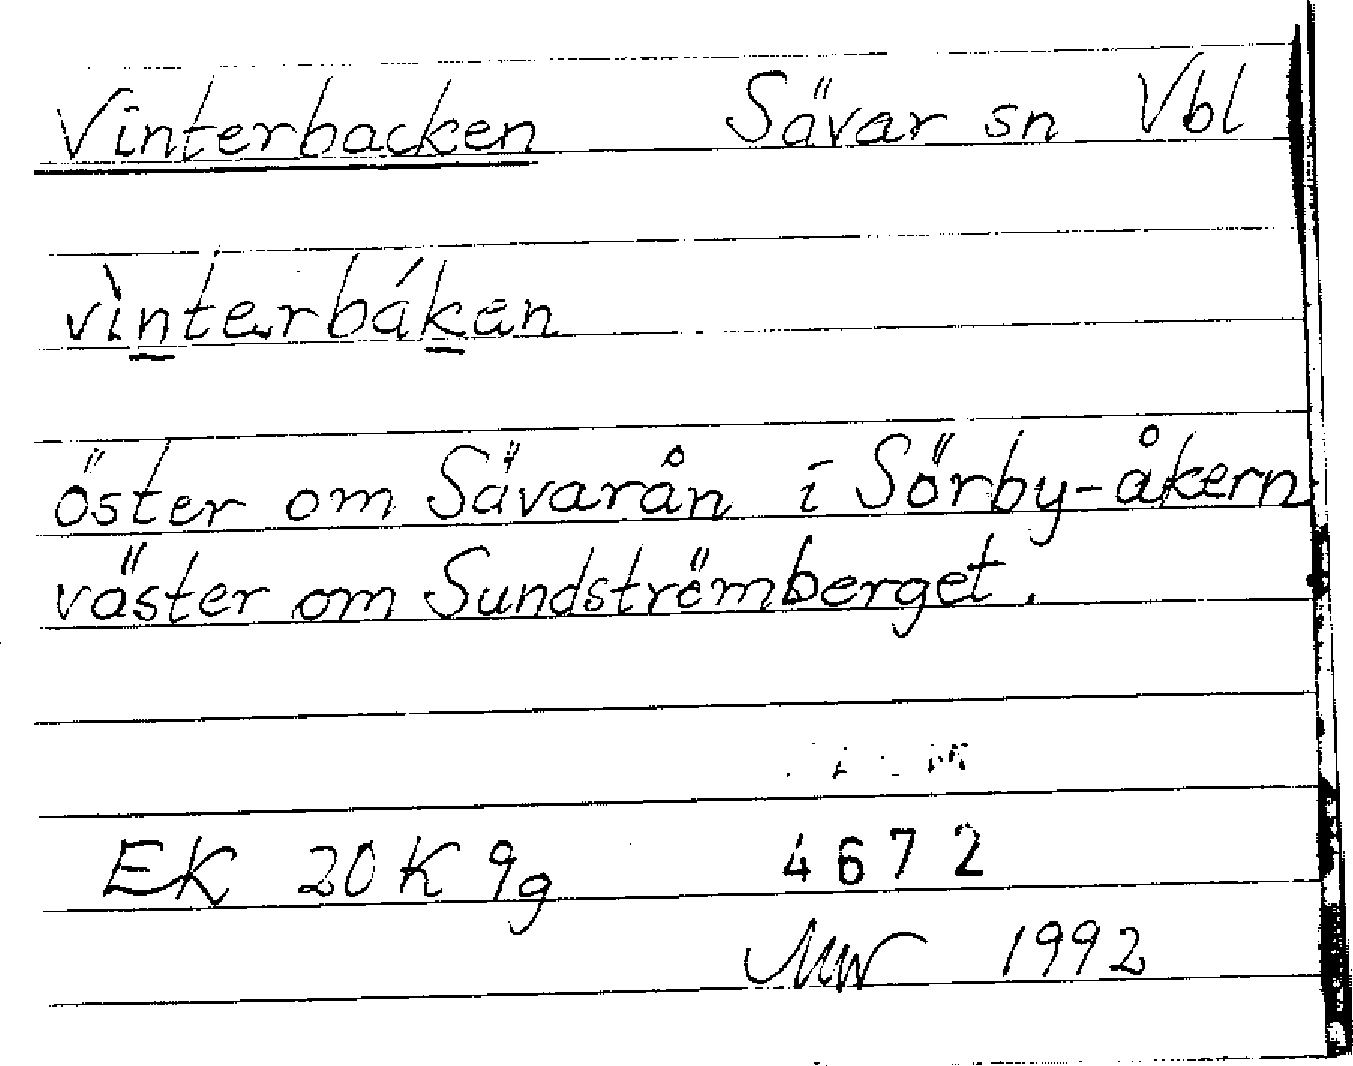 Vinterbacken Sävar sn Vbl
vìnterbáken
öster om Sävarån i Sörby-åkern
väster om Sundströmberget.
EK 20K 9g 4672
MW 1992